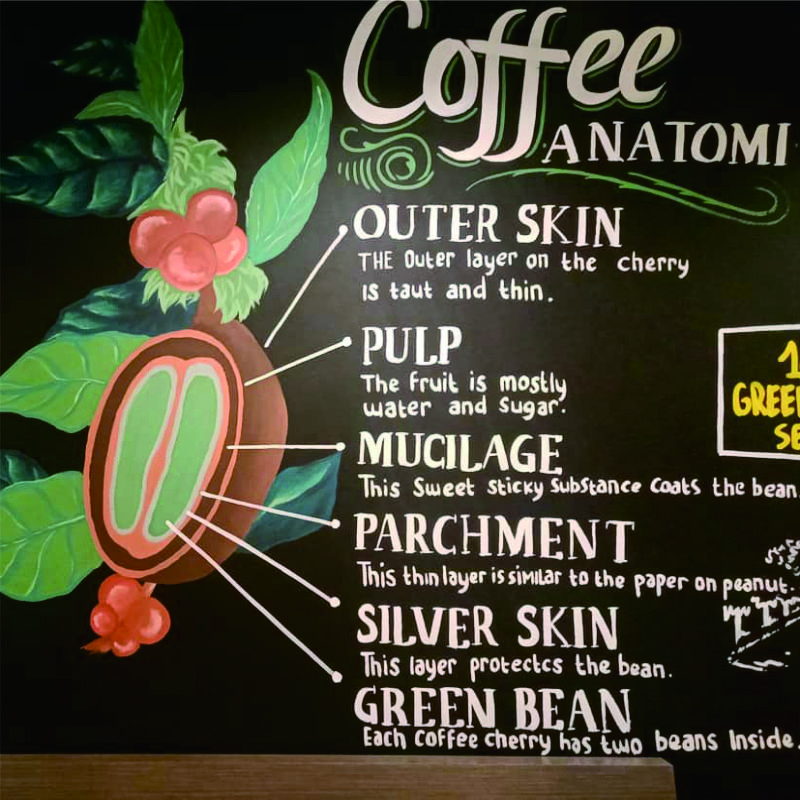 Coffee
ANATOMI
OUTER SKIN
THE Outer layer on the cherry
is taut and thin.
PULP
The fruit is mostly
water and Sugar.
MUCILAGE
This Sweet Sticky Substance Coats the bean.
PARCHMENT
This thin layer is similar to the paper on peanut.
SILVER SKIN
This layer protectcs the bean.
GREEN BEAN
Each Coffee Cherry has two beans Inside.
1
GREE
SE